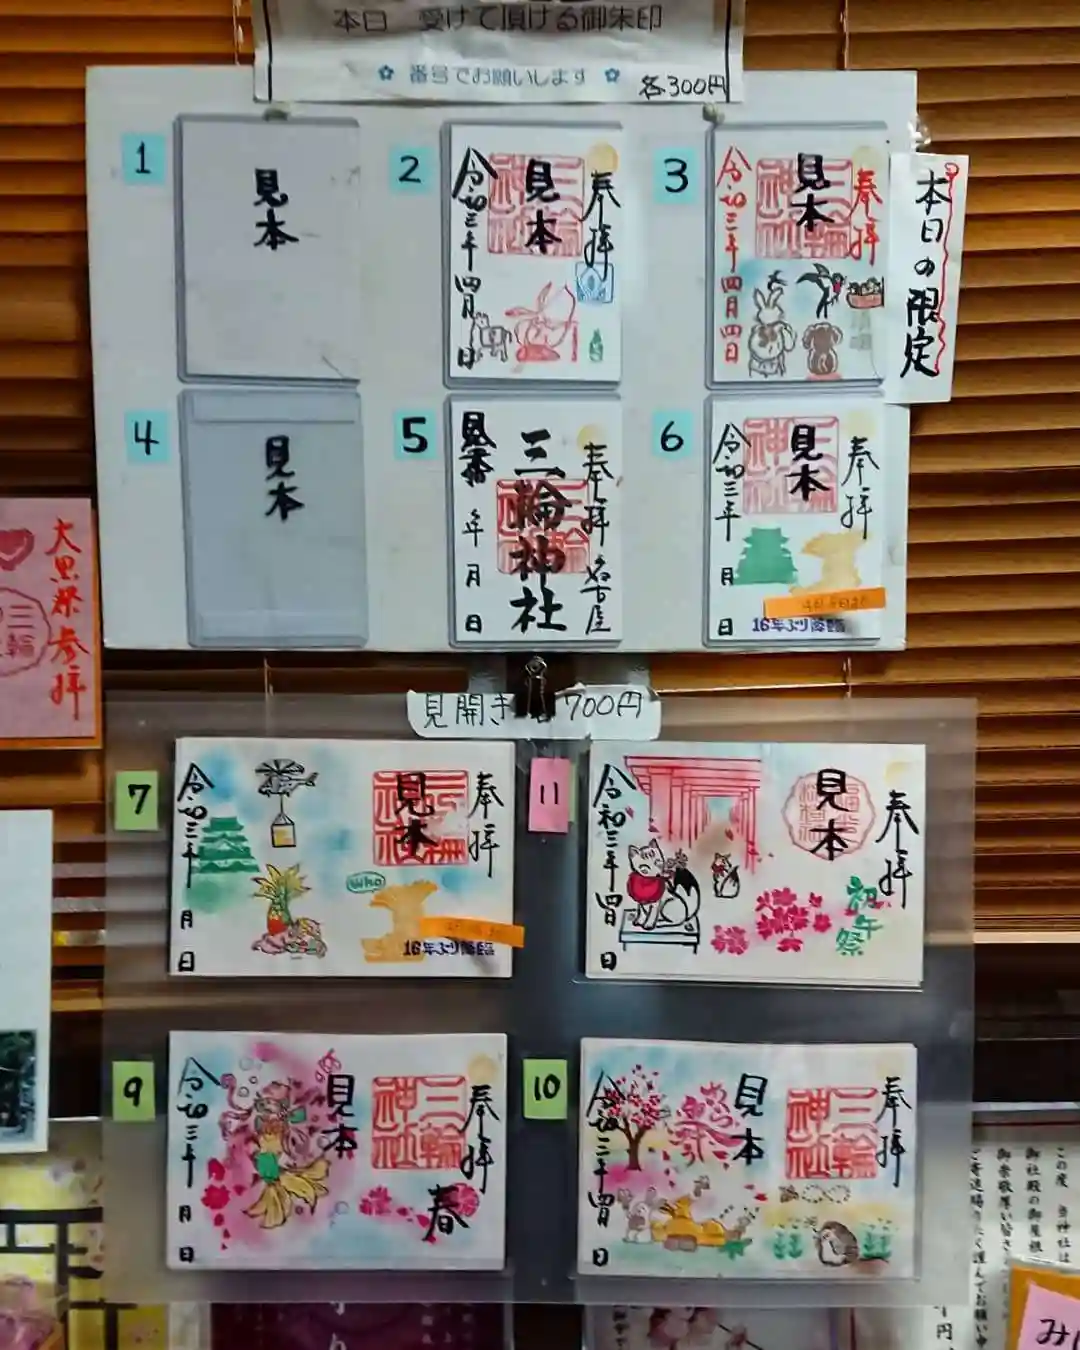 本日 受けて頂ける御朱印
✿ 番号でお願いします ✿
各300円
1
見本
2
奉拝
見本
三輪神社
令和三年四月 日
3
奉拝
見本
三輪神社
令和三年四月四日
本日の限定
4
見本
5
奉拝 名古屋
三輪神社
見本
年 月 日
6
奉拝
見本
三輪神社
令和三年 月 日
16年ぶり降臨
大黒祭参拝
三輪
見開き 700円
7
奉拝
見本
三輪神社
令和三年 月 日
Who
16年ぶり降臨
11
奉拝
見本
初午祭
令和三年四月 日
9
奉拝
見本
三輪神社
春
令和三年 月 日
10
奉拝
見本
三輪神社
令和三年四月 日
この度 当神社は
御社殿の御屋根